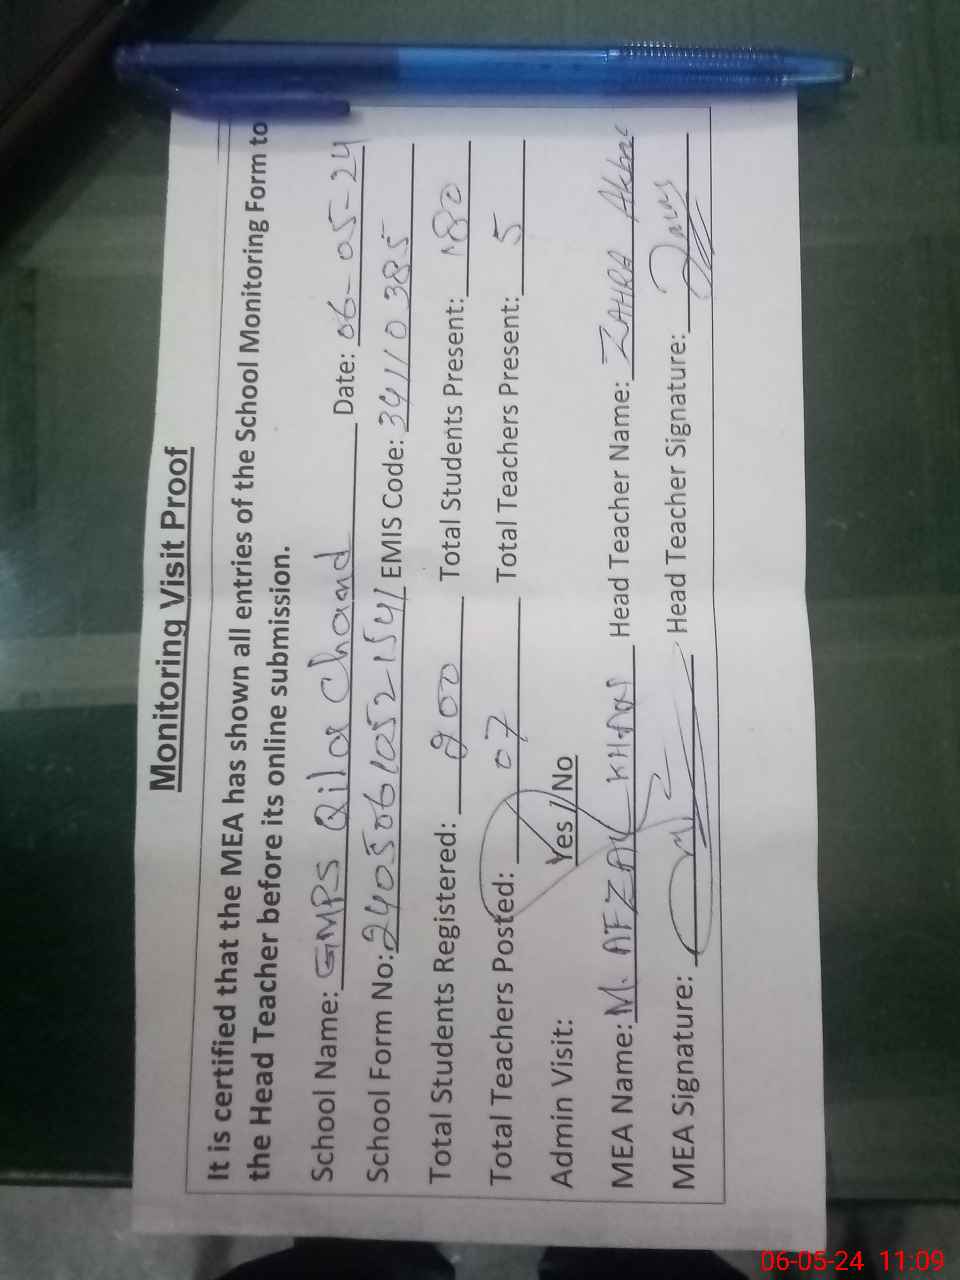 Monitoring Visit Proof
It is certified that the MEA has shown all entries of the School Monitoring Form to
the Head Teacher before its online submission.
School Name: GMPS Qila Chand Date: 06-05-24
School Form No: 24050610521541 EMIS Code: 34110385
Total Students Registered: 200 Total Students Present: 180
Total Teachers Posted: 07 Total Teachers Present: 5
Admin Visit: Yes // No
MEA Name: M. AFZAL KHAN Head Teacher Name: ZAHRA Akbar
MEA Signature: Head Teacher Signature:
06-05-24 11:09